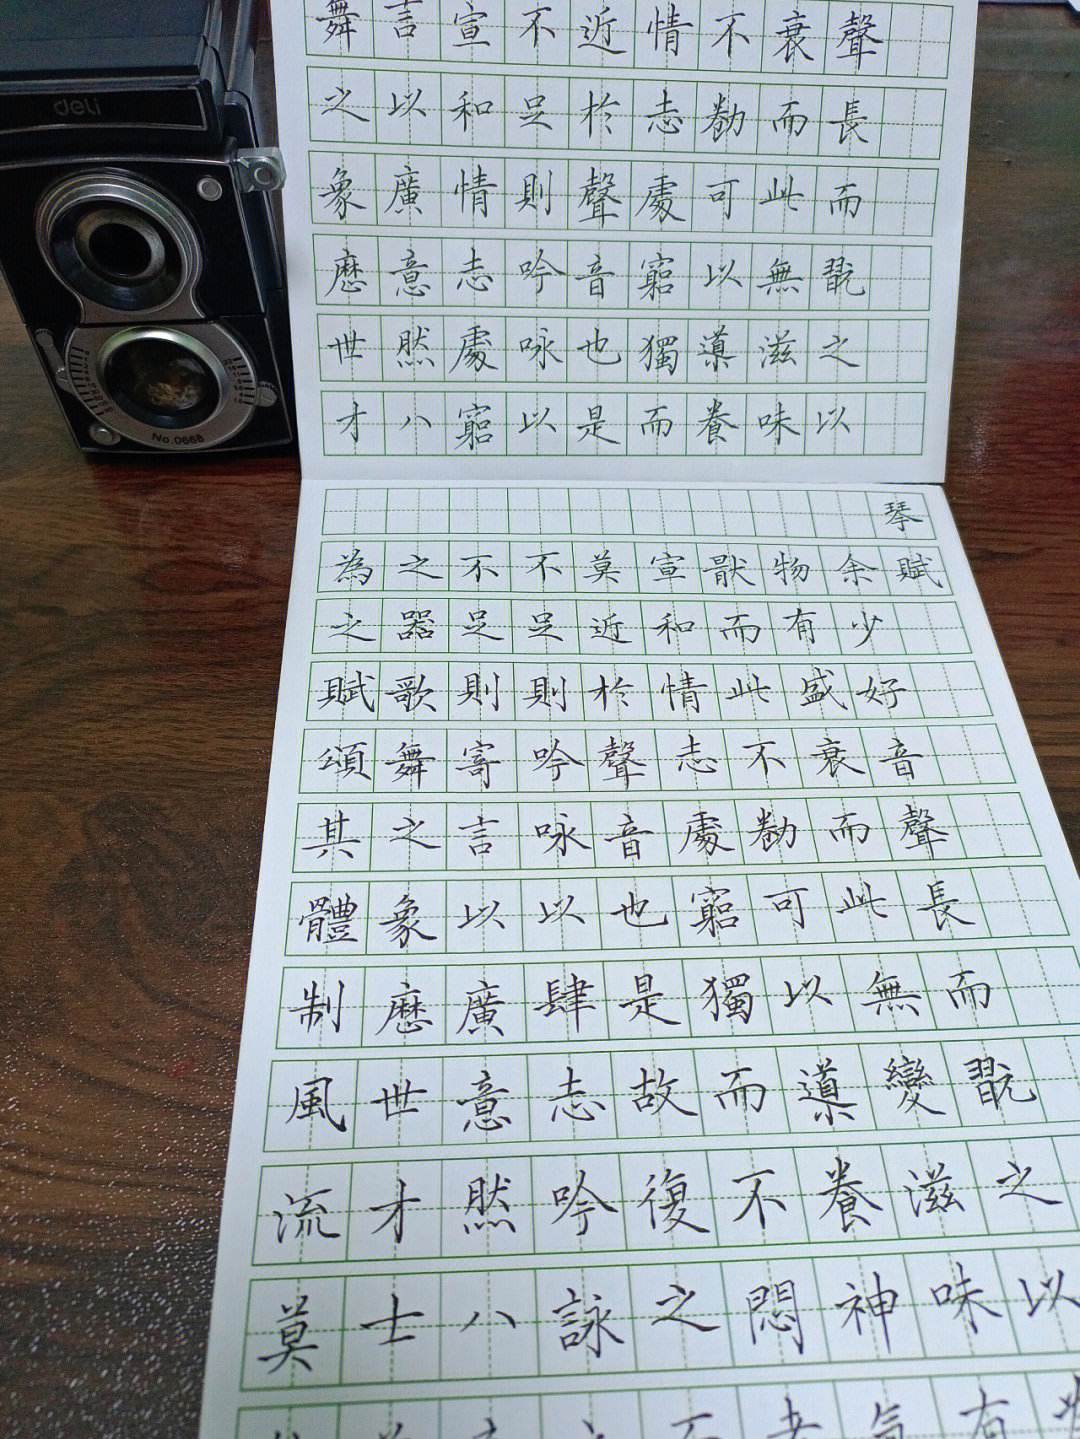 deli
No.0668
聲長而翫之以
衰而此無滋味以
不勌可以導養
情志處窮獨而
近於聲音也是
不足則吟咏以
宣和情志處窮
言以廣意然八
舞之象歷世才
琴賦
余少好音聲長而翫之以
物有盛衰而此無變滋味有
猒而此不勌可以導養神氣
宣和情志處窮獨而不悶者
莫近於聲音也是故復之不
不足則吟咏以肆志吟詠
不足則寄言以廣意然八
之器歌舞之象歷世才士
為之賦頌其體制風流莫